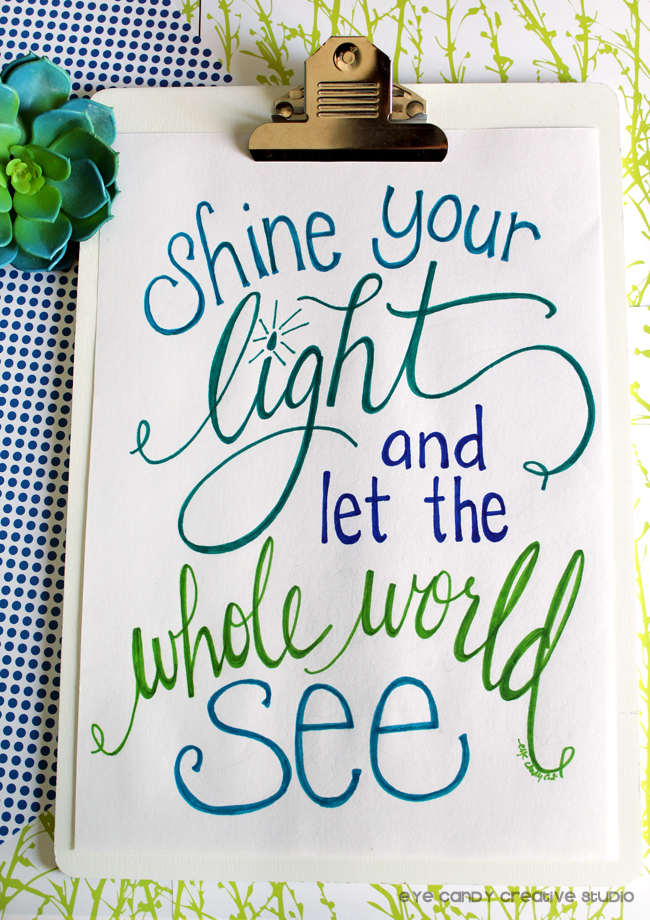 Shine your
light
and
let the
whole world
see
eye candy creative studio